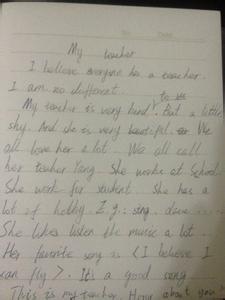 My teacher
I believe everyone has a teacher.
I am no different.
to us
My teacher is very kind. But a little
shy. And she is very beautiful. We
all love her a lot. We all call
her teacher Yang. She works at School.
She work for student. she has a
lot of hobby. E.g.: sing. dance ......
She likes listen the music a lot.
Her favorite song is 《I believe I
can fly》. It's a good song ......
This is my teacher. How about you